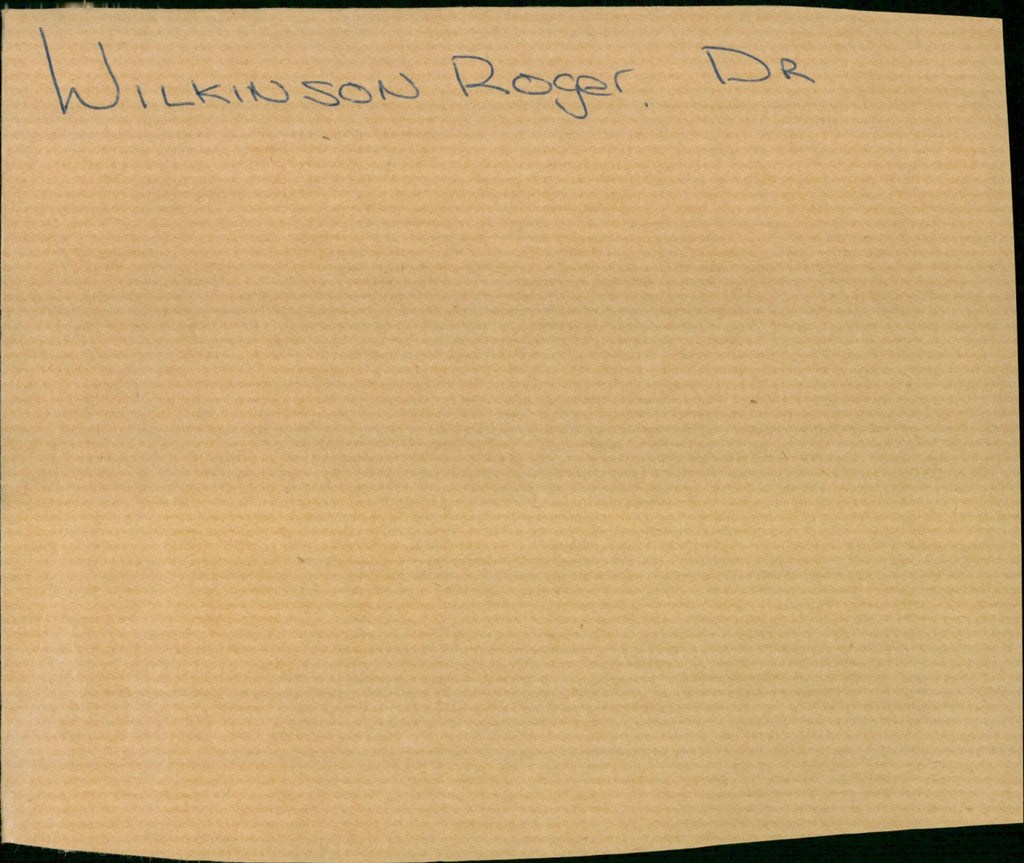 WILKINSON Roger. DR